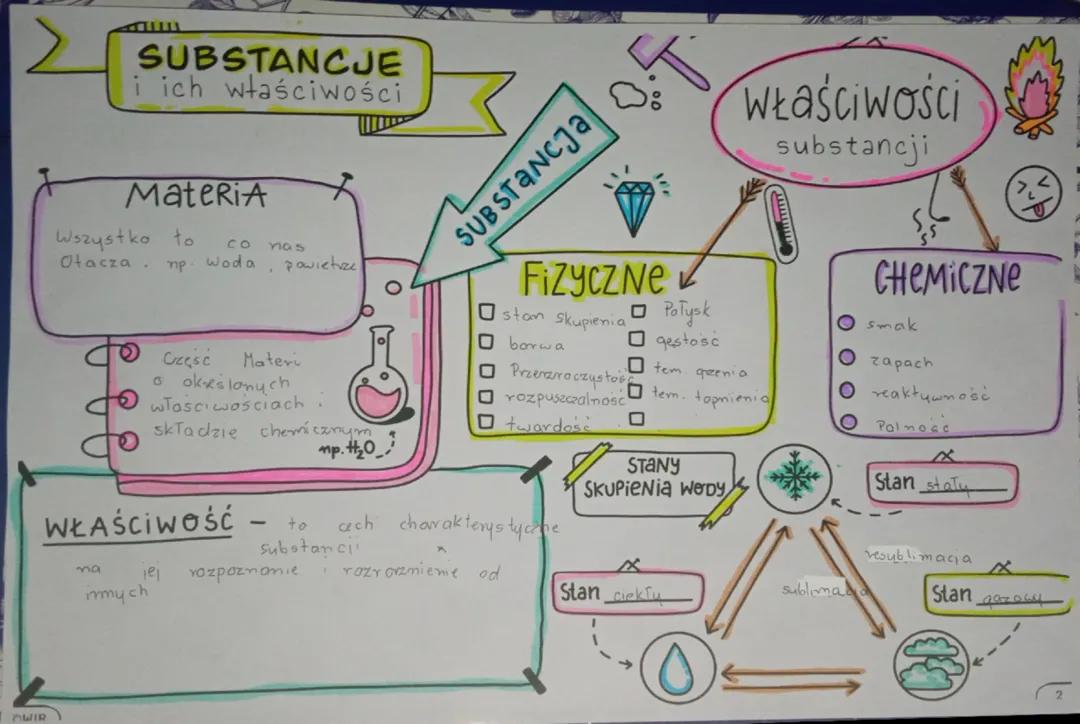 SUBSTANCJE
i ich właściwości
SUBSTANCJA
właściwości
substancji
Materia
Wszystko to co nas
Otacza. np. woda, powietrze
Część Materi
o określonych
właściwościach i
składzie chemicznym
np. H₂O
FIZYCZNE
stan skupienia
barwa
Przezroczystość
rozpuszczalność
twardość
Połysk
gęstość
tem. topnienia
CHEMICZNE
smak
zapach
reaktywność
Palność
WŁAŚCIWOŚĆ – to cech charakterystyczne
substancji
na jej rozpoznanie i od
innych
STANY
SKUPIENIA WODY
Stan stały
resublimacja
sublimacja
Stan ciekły
Stan gazowy
2